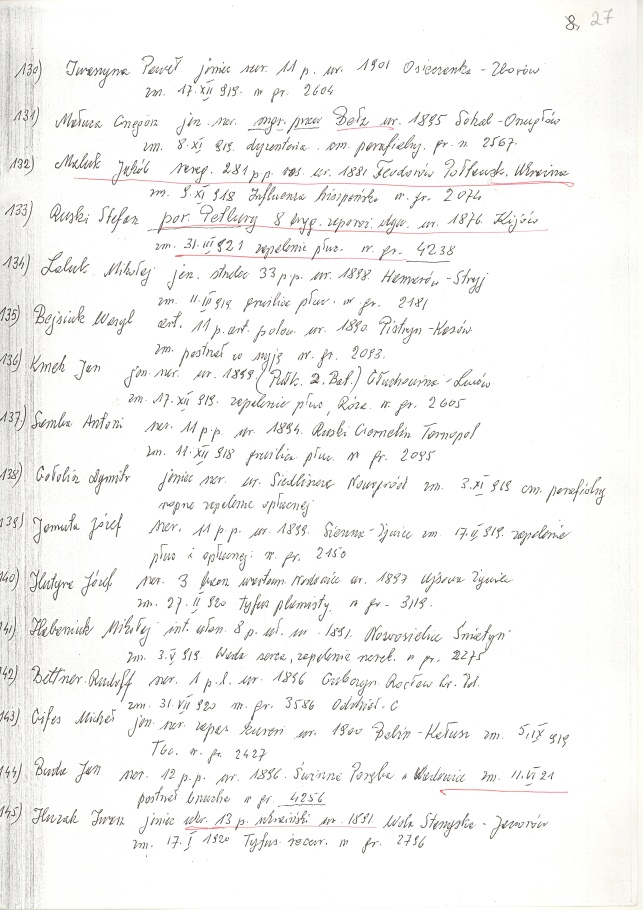 8. 27
130) Iwasyna Paweł jeniec ser. 11 p. ur. 1901 Osieczenka - Zborów
zm. 17.XII 919. nr gr. 2604
131) Matusz Grzegorz jen. ser. ur. 1895 Sokal -
zm. 8.XI 919. dyzenteria. cm. parafialny. gr. n. 2567.
132) Maluk Jakób szereg. 281 p.p. ros. ur. 1881 Teodorów Połtawsk. Ukraina
zm. 9.XI 918 Influenza hiszpańska nr. gr. 2074
133) Ruski Stefan por. Petlury 8 bryg. ur. 1876. Kijów
zm. 31.III 921 zapalenie płuc. nr gr. 4238
134) Laluk Mikołaj jen. strzelec 33 p.p. ur. 1898. - Stryj
zm. 11.III 919. gruźlica płuc. nr gr. 2181
135) Bejsiuk Wasyl art. 11 p. art. polow. ur. 1890 Pistryn - Kosów
zm. postrzał w szyję nr. gr. 2093.
136) Kmek Jan jen. ser. ur. 1899 (Pułk. 2. Bat.) - Lwów
zm. 17.XII 919. zapalenie płuc, Róża. nr gr. 2605
137) Semba Antoni ser. 11 p.p. ur. 1894. Ruski Tarnopol
zm. 11.XII 918 gruźlica płuc nr gr. 2095
138) Dymitr jeniec ser. ur. Siedliszcze Nowogród zm. 3.XI 919 cm. parafialny
ropne zapalenie opłucnej
139) Jamuła Józef szer. 11 p.p. ur. 1899. Sienna - Żywiec zm. 17.II 919. zapalenie
płuc i opłucnej. nr. gr. 2150
140) Hutyra Józef szer. 3 baon wartown. ur. 1897 Ujsowa Żywiec
zm. 27.II 920 tyfus plamisty. nr gr - 3119.
141) Habeniuk Mikołaj int. ułan. 8 p. uł. ur. 1891. Nowosielce Śniatyń
zm. 3.V 919. Wada serca, zapalenie nerek. nr gr. 2275
142) Bettner Rudolf szer. 1 p.l. ur. 1896 Rocław Kr. Pol.
zm. 31.VII 920 nr. gr. 3586 Oddział. C
143) Gifes Michał jen. ser. zapas ur. 1900 - Kałusz zm. 5.IX 919
Tbc. nr. gr. 2427
144) Burda Jan szer. 12 p.p. ur. 1896. Świnna Poręba Wadowice zm. 11.VI 21
postrzał brzucha nr gr. 4256
145) Huzak Iwan jeniec ukr. 13 p. ukraiński ur. 1891 Wola Stenyska - Jaworów
zm. 17.I 1920 Tyfus recur. nr gr. 2796